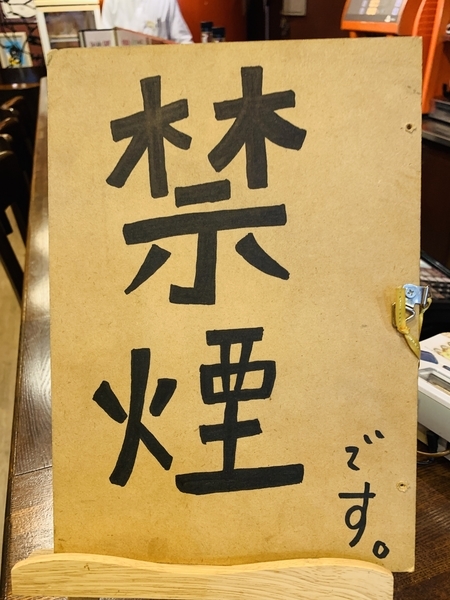 禁煙
です。